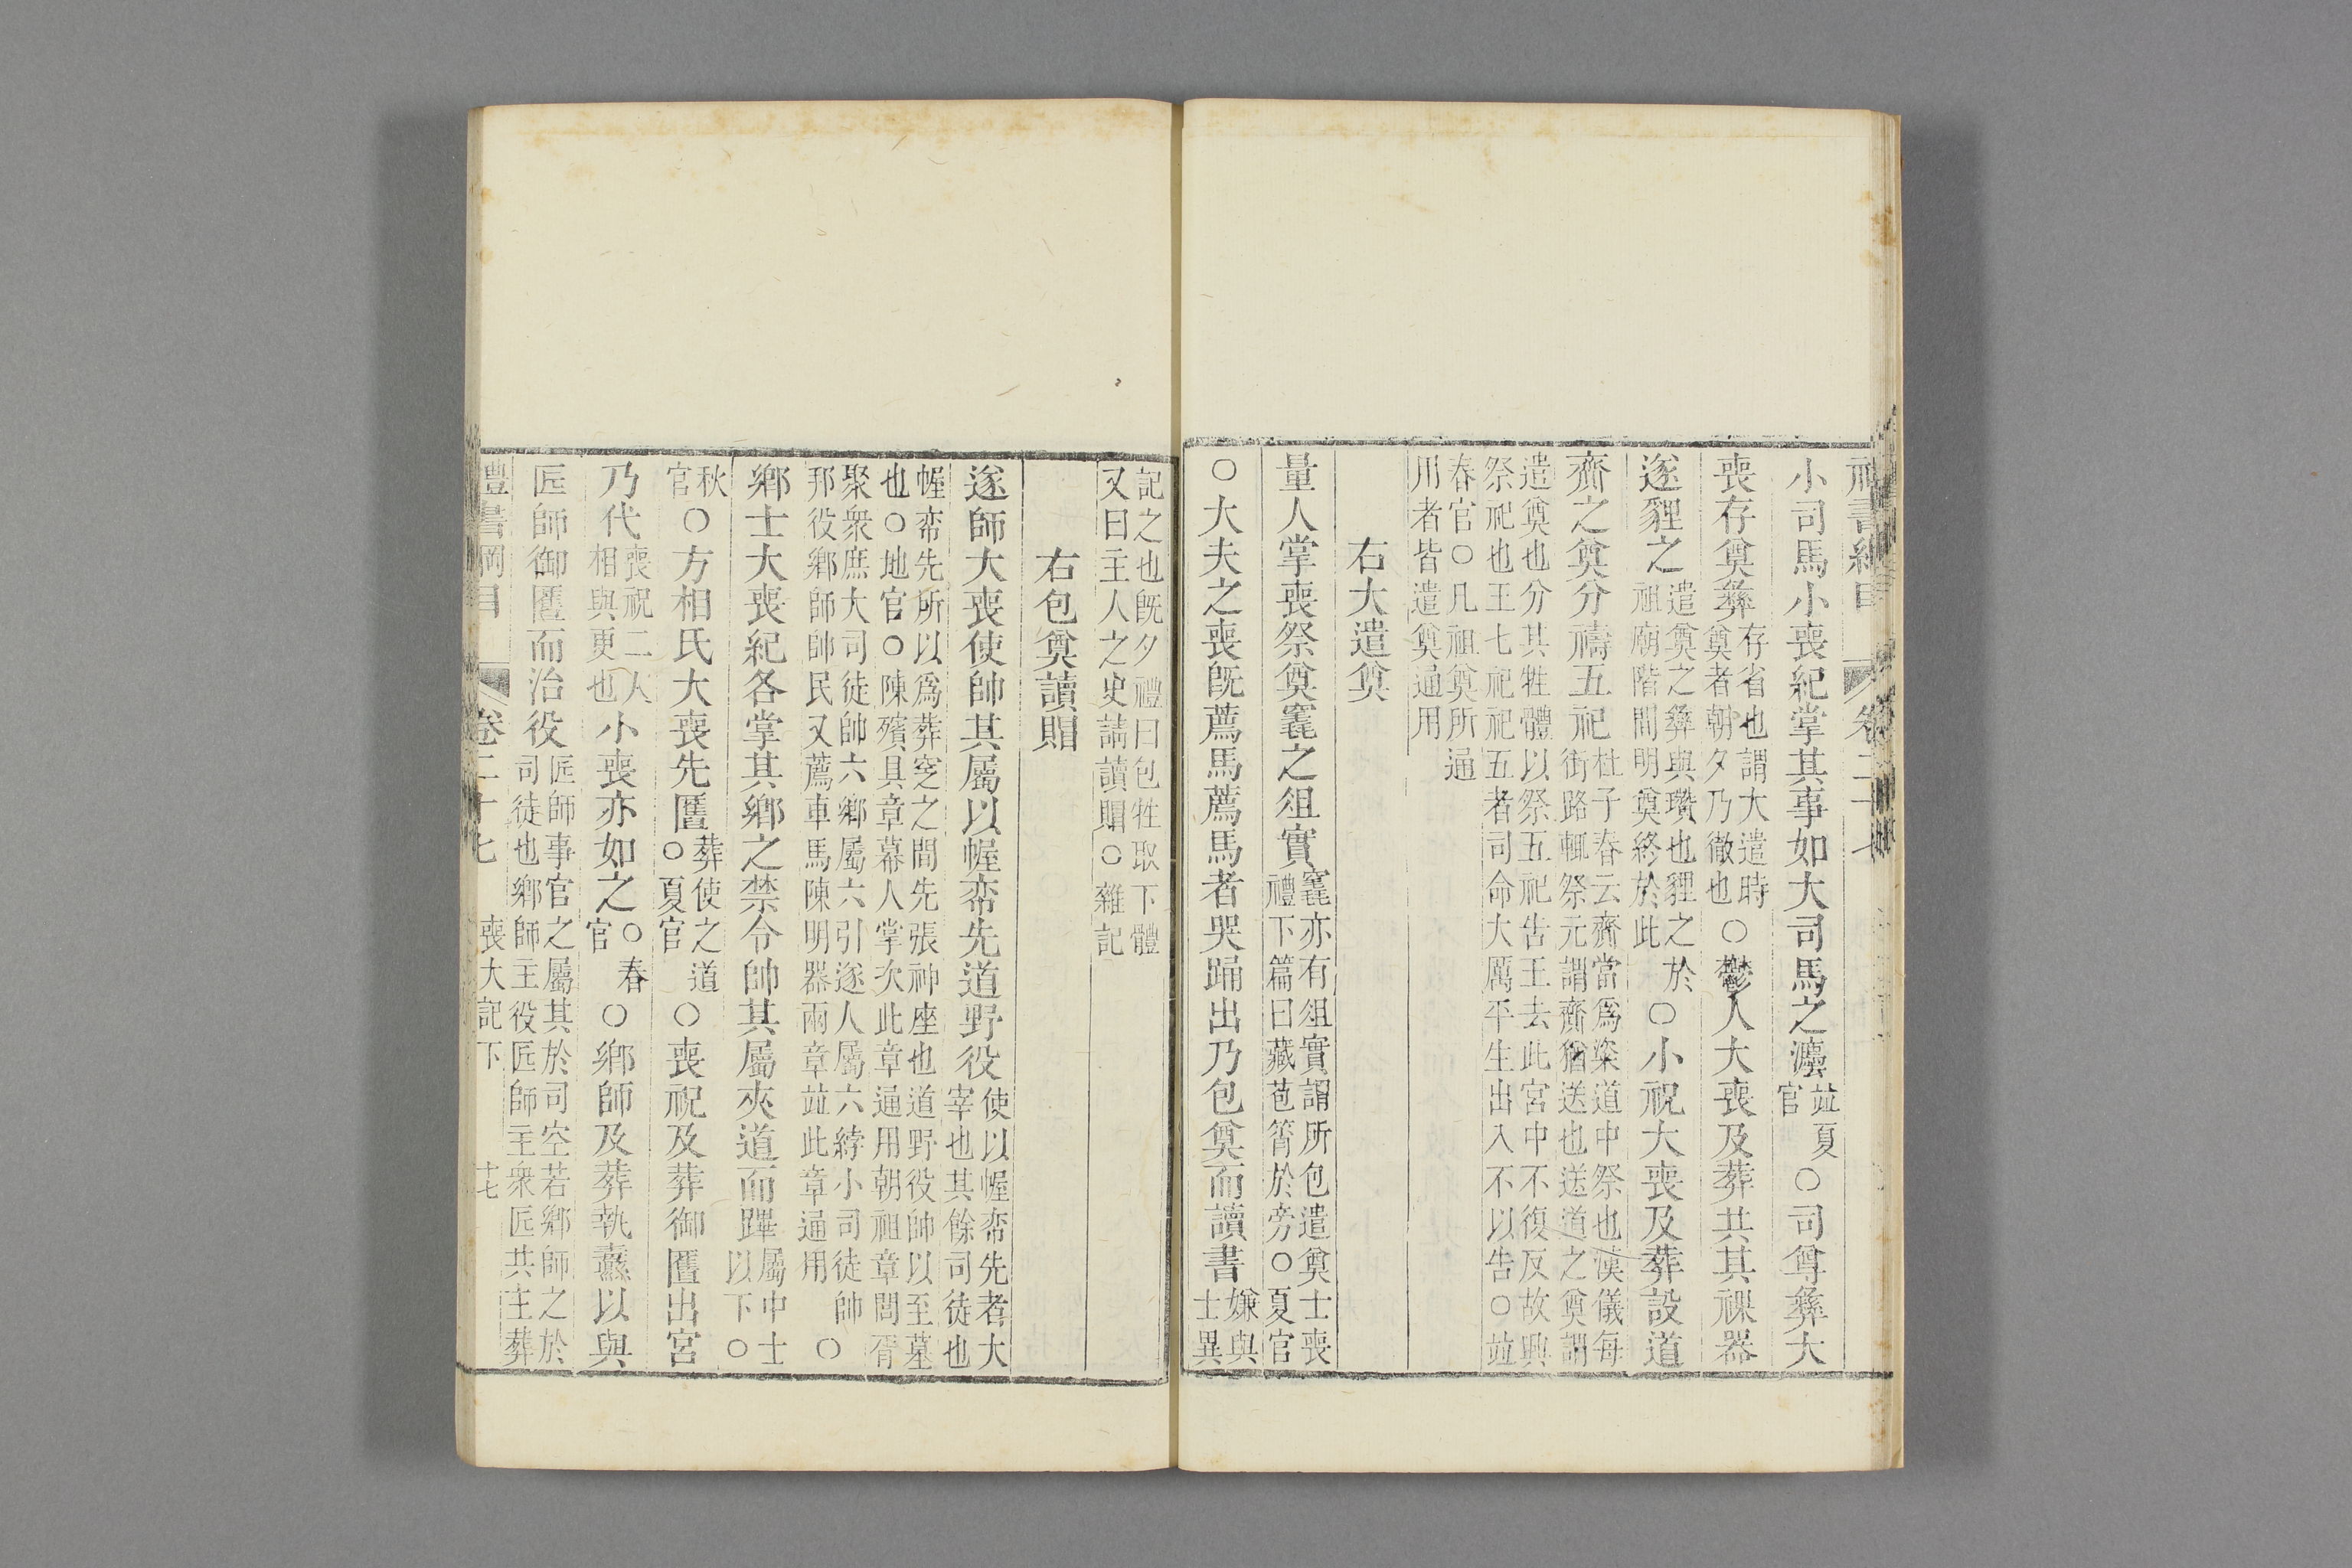 禮書綱目 卷二十七
小司馬小喪紀掌其事如大司馬之灋並夏官○司尊彝大
喪存奠彝存省也謂大遣時奠者朝夕乃徹也○鬱人大喪及葬共其祼器
遂貍之遣奠之彝與瓚也貍之於祖廟階間明奠終於此○小祝大喪及葬設道
齊之奠分禱五祀杜子春云齊當爲粢道中祭也漢儀每街路輒祭元謂齊猶送也送道之奠謂
遣奠也分其牲體以祭五祀告王去此宮中不復反故興祭祀也王七祀祀五者司命大厲平生出入不以告○並
春官○凡祖奠所通用者皆遣奠通用
右大遣奠
量人掌喪祭奠竁之俎實竁亦有俎實謂所包遣奠士喪禮下篇曰藏苞筲於旁○夏官
○大夫之喪既薦馬薦馬者哭踊出乃包奠而讀書嫌與士異
記之也既夕禮曰包牲取下體又曰主人之史請讀賵○雜記
右包奠讀賵
遂師大喪使帥其屬以幄帟先道野役使以幄帟先者大宰也其餘司徒也
幄帟先所以爲葬窆之間先張神座也道野役帥以至墓也○地官○陳殯具章幕人掌次此章通用朝祖章閭胥
聚衆庶大司徒帥六鄉屬六引遂人屬六綍小司徒帥邦役鄉師帥民又薦車馬陳明器兩章並此章通用○
鄉士大喪紀各掌其鄉之禁令帥其屬夾道而蹕屬中士以下○
秋官○方相氏大喪先匶葬使之道○夏官○喪祝及葬御匶出宮
乃代喪祝二人相與更也小喪亦如之○春官○鄉師及葬執纛以與
匠師御匶而治役匠師事官之屬其於司空若鄉師之於司徒也鄉師主役匠師主衆匠共主葬
禮書綱目 卷二十七 喪大記下 十七